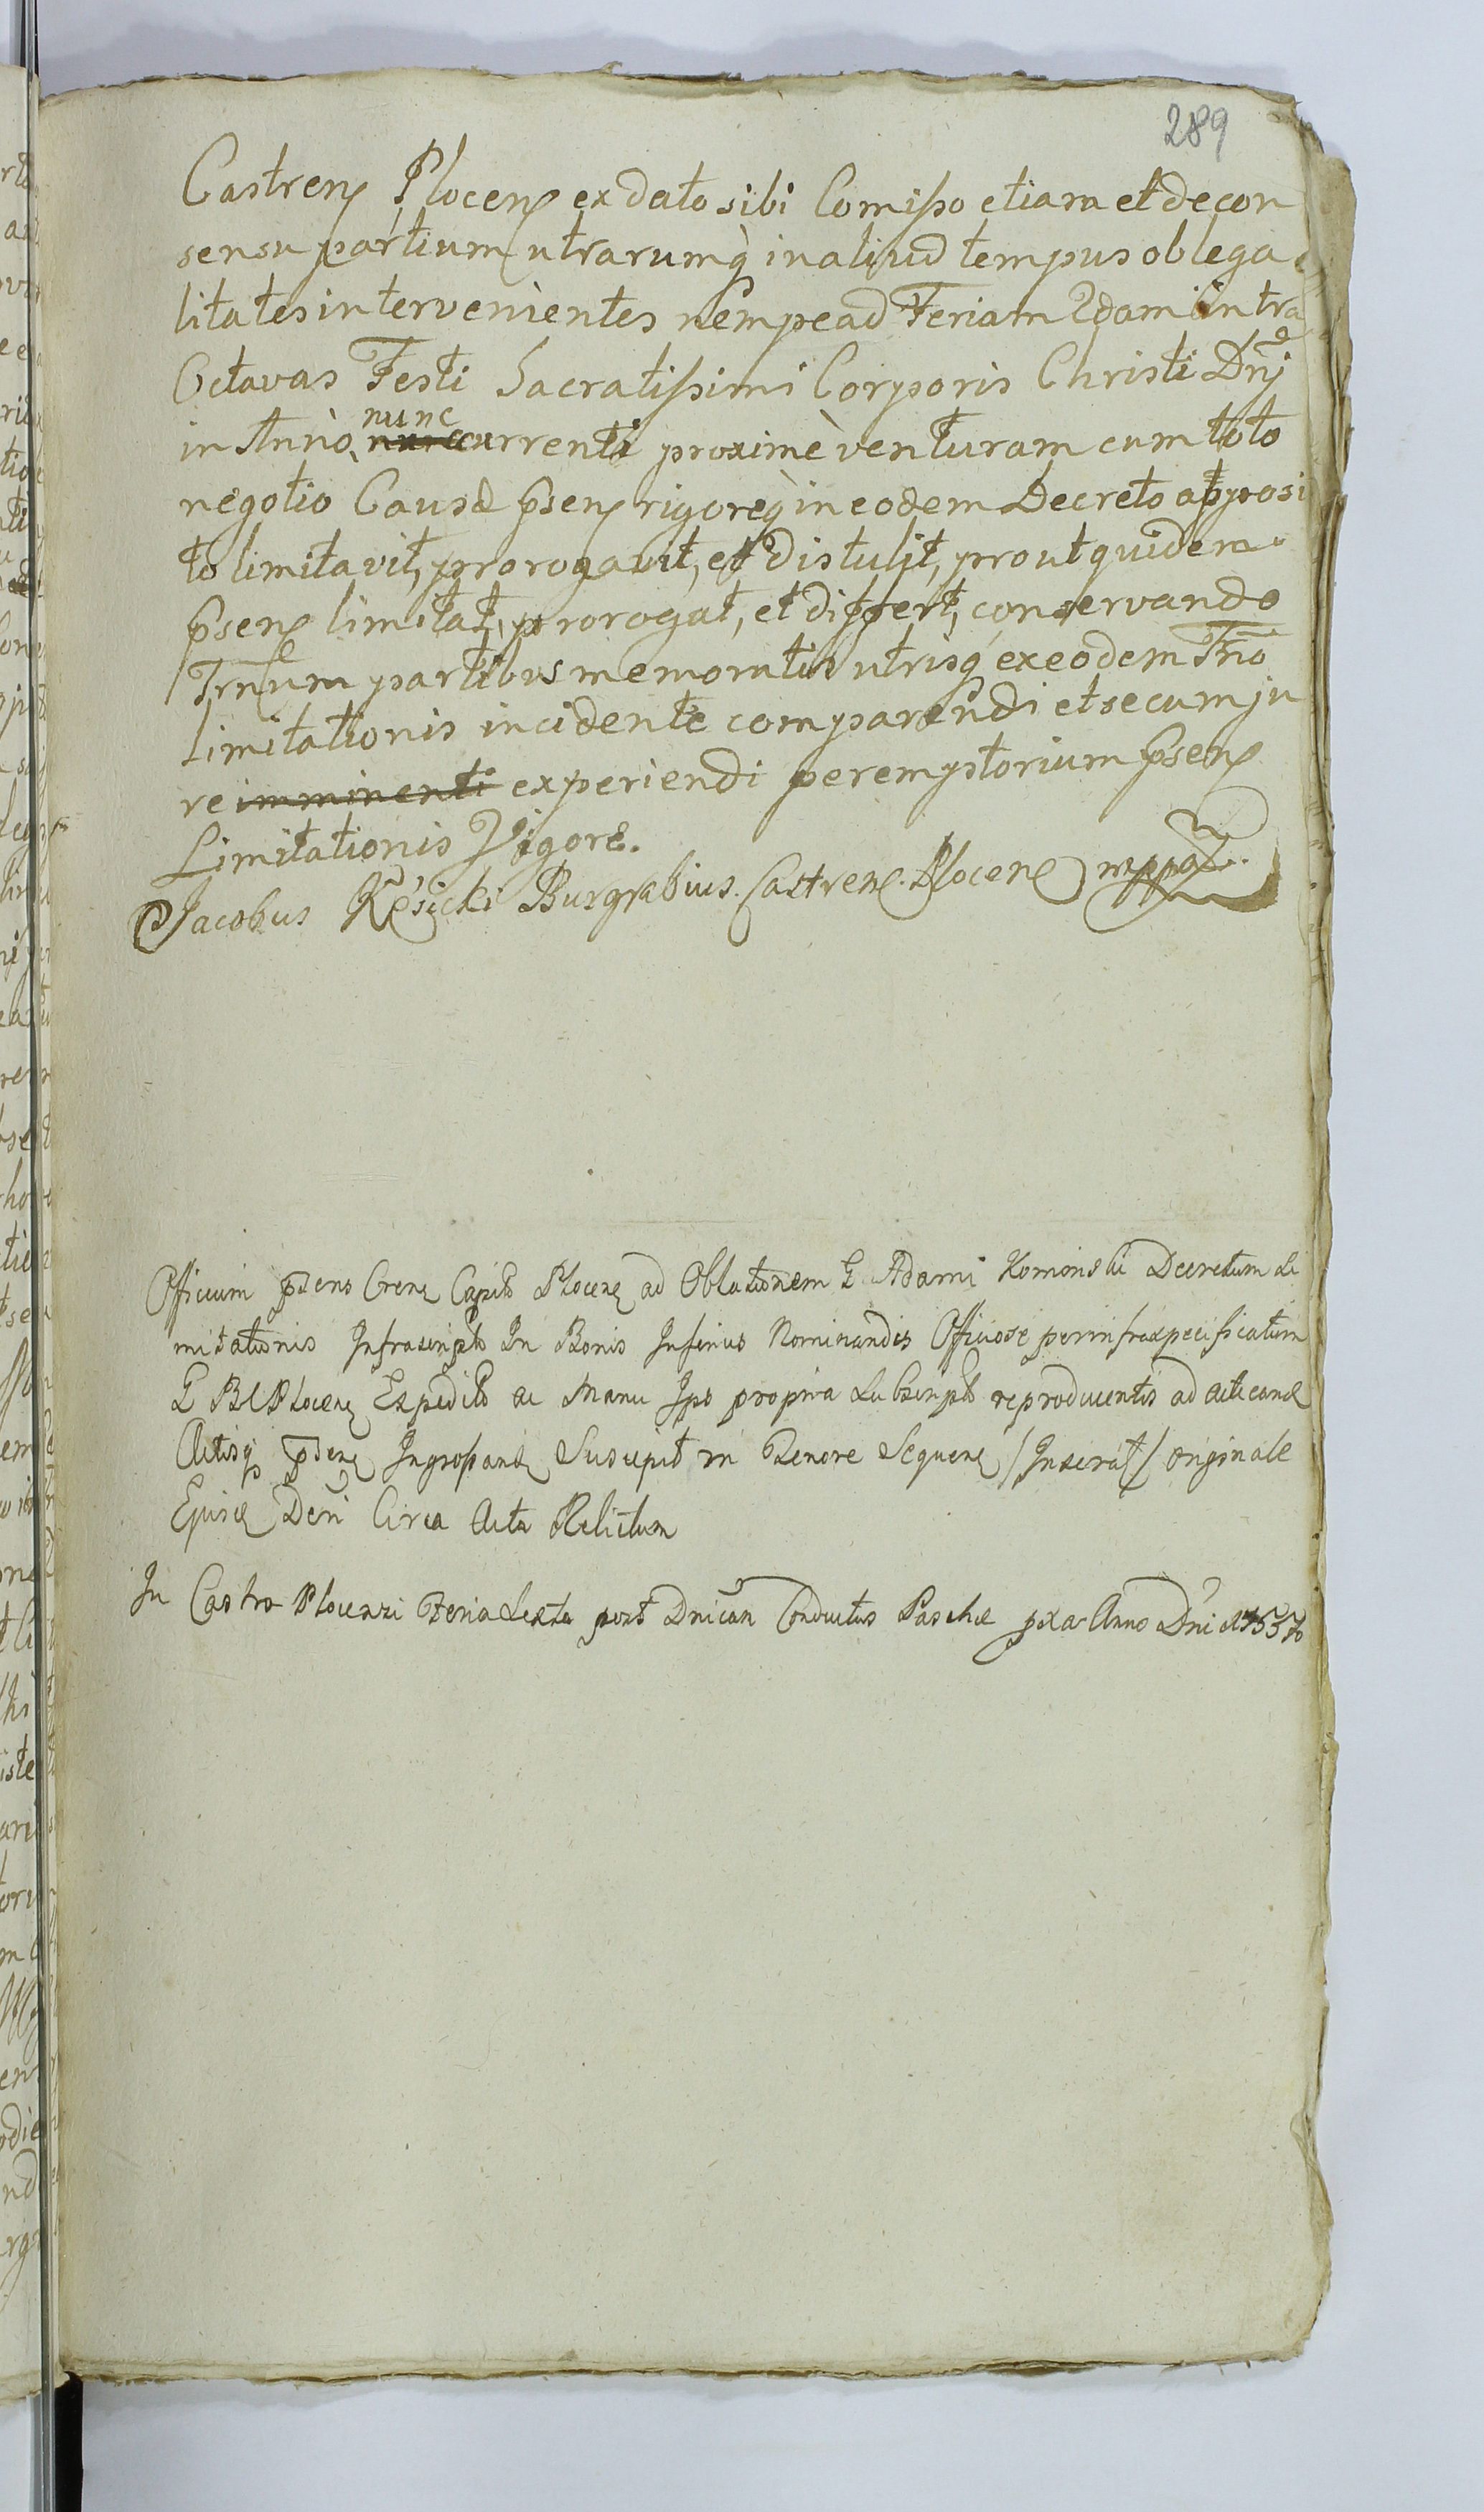 289
Castren Plocen ex dato sibi Comisso etiam et de con
sensu partium utrarumq in aliud tempus ob lega
litates intervenientes nempe ad Feriam 2dam intra
Octavas Festi Sacratissimi Corporis Christi Dnj
in Anno nunc currenti proximè venturam cum toto
negotio Causæ psen rigoreq in eodem Decreto apposi
to limitavit, prorogavit, et distulit, prout quidem
psen limitat, prorogat, et differt, conservando
Trnum partibus memoratis utrisq ex eodem Trno
limitationis incidente comparendi et secum ju
re imminenti experiendi peremptorium psen
Limitationis Vigore.
Jacobus Kęsicki Burgrabius Castren. Plocen mppa
Officium pdens Crens Capit Plocen ad Oblationem G Adami Komorski Decretum Li
mitationis Infrascript In Bonis Inferius Nominandis Officiose per infraspecificatum
G Plocen Expedit ac Manu Ips propria Subscript reproducentis ad acticand
Actisq pden Ingrossand Suscepit in Tenore Sequen /Inserat/ originale
Ejusd Dcri Circa Acta Relictum
In Castro Plocensi Feria Sexta post Dnicam Conductus Paschæ pxa Anno Dni 1755to